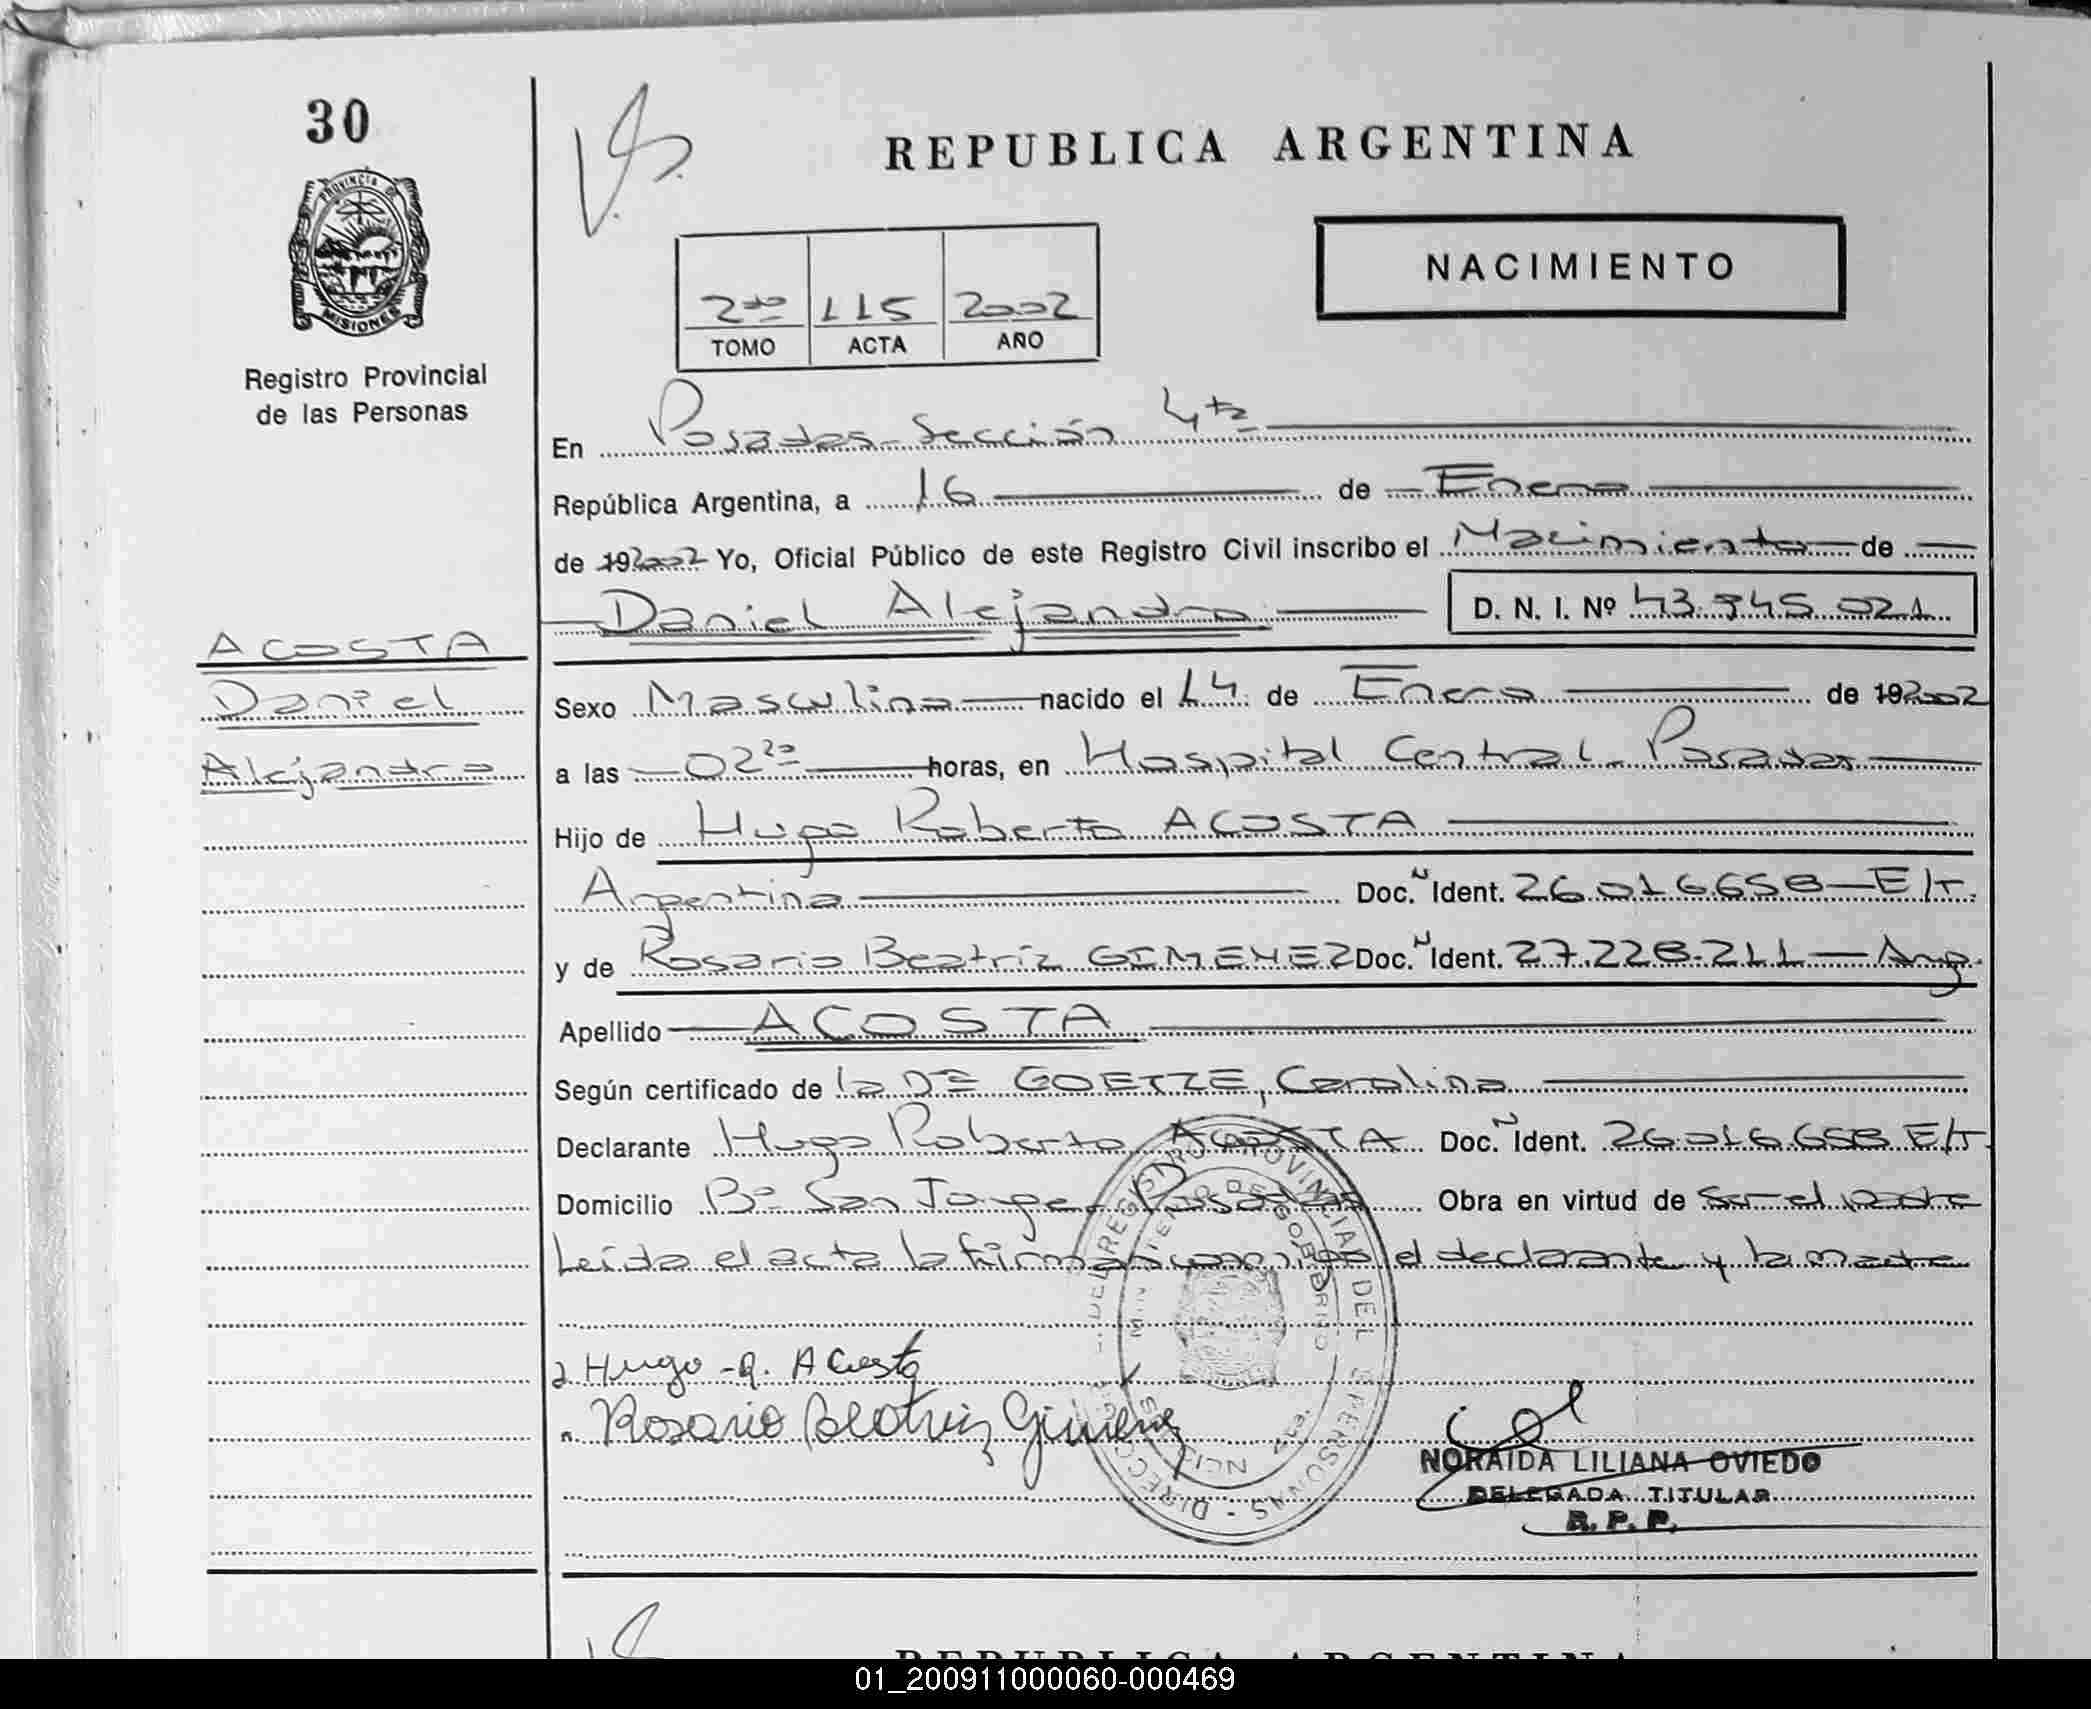 30
REPUBLICA ARGENTINA
PROVINCIA DE
MISIONES
NACIMIENTO
2do 115 2002
TOMO ACTA AÑO
Registro Provincial
de las Personas
En Posadas - Sección 4ta
República Argentina, a 16 de Enero
de 192002 Yo, Oficial Público de este Registro Civil inscribo el Nacimiento de
Daniel Alejandro D. N. I. Nº 43.945.021
ACOSTA
Daniel
Alejandro
Sexo Masculino nacido el 14 de Enero de 192002
a las 02 20 horas, en Hospital Central - Posadas
Hijo de Hugo Roberto ACOSTA
Argentina Doc. N Ident. 26.016.658 - E/T.
y de Rosario Beatriz GIMENEZ Doc. N Ident. 27.228.211 - Arg.
Apellido ACOSTA
Según certificado de la Dra GOETZE, Carolina
Declarante Hugo Roberto ACOSTA Doc. N Ident. 26.016.658 E/T.
Domicilio Bº San Jorge - Posadas Obra en virtud de Ser el padre
Leída el acta la firman conmigo el declarante y la madre
Hugo - R. Acosta
Rosario Beatriz Gimenez
NORAIDA LILIANA OVIEDO
DELEGADA TITULAR
R. P. P.
REPUBLICA ARGENTINA
01_200911000060-000469